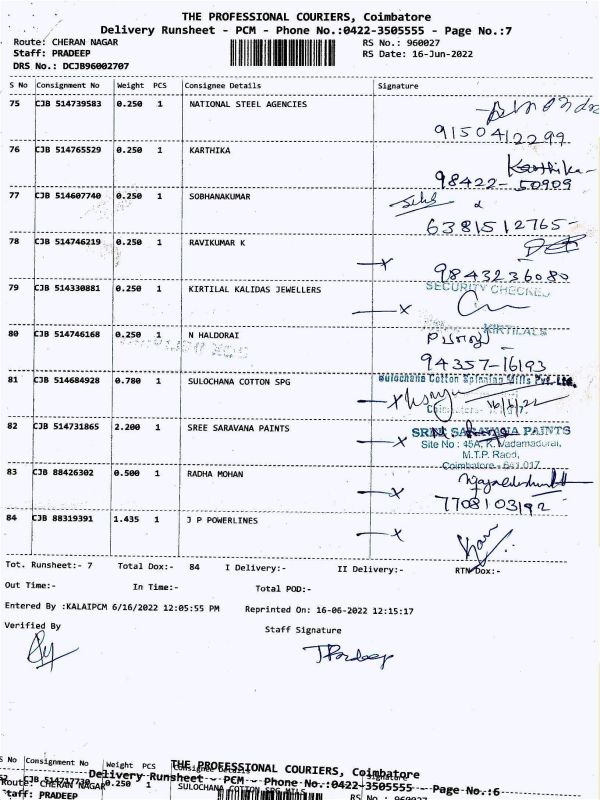 THE PROFESSIONAL COURIERS, Coimbatore
Delivery Runsheet - PCM - Phone No.:0422-3505555 - Page No.:7
Route: CHERAN NAGAR RS No.: 960027
Staff: PRADEEP RS Date: 16-Jun-2022
DRS No.: DCJB96002707
S No Consignment No Weight PCS Consignee Details Signature
75 CJB 514739583 0.250 1 NATIONAL STEEL AGENCIES
9150412299
76 CJB 514765529 0.250 1 KARTHIKA Karthika
98422-50909
77 CJB 514607740 0.250 1 SOBHANAKUMAR
6381512765
78 CJB 514746219 0.250 1 RAVIKUMAR K
9843236080
79 CJB 514330881 0.250 1 KIRTILAL KALIDAS JEWELLERS SECURITY CHECKED
KIRTILALS
80 CJB 514746168 0.250 1 N HALDORAI
94357-16193
81 CJB 514684928 0.780 1 SULOCHANA COTTON SPG Sulochana Cotton Spinning Mills Pvt. Ltd.
16/6/22
82 CJB 514731865 2.200 1 SREE SARAVANA PAINTS SREE SARAVANA PAINTS
Site No : 45A, K. Vadamadurai,
M.T.P. Raod,
Coimbatore - 641 017
83 CJB 88426302 0.500 1 RADHA MOHAN
7708103192
84 CJB 88319391 1.435 1 J P POWERLINES
Tot. Runsheet:- 7 Total Dox:- 84 I Delivery:- II Delivery:- RTN Dox:-
Out Time:- In Time:- Total POD:-
Entered By :KALAIPCM 6/16/2022 12:05:55 PM Reprinted On: 16-06-2022 12:15:17
Verified By Staff Signature
TPradeep
S No Consignment No Weight PCS Consignee Details Signature
THE PROFESSIONAL COURIERS, Coimbatore
Delivery Runsheet - PCM - Phone No.:0422-3505555 - Page No.:6
CJB 514717730 0.250 1 SULOCHANA COTTON SPG MILS
Route: CHERAN NAGAR RS No.: 960027
Staff: PRADEEP